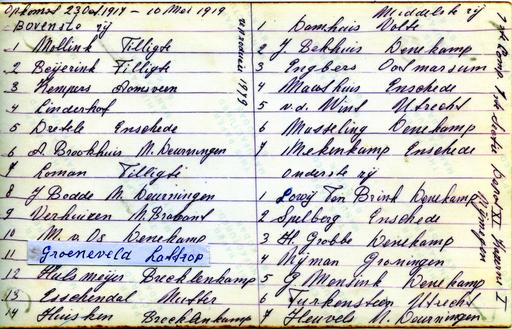 Opkomst 23 Oct 1917 - 10 Mei 1919
Bovenste rij
1 Mollink Tilligte
2 Beijerink Tilligte
3 Kempers
4 Linderhof
5 Enschede
6 A Brookhuis N. Deurningen
7 Loman Tilligte
8 J Bodde N. Deurningen
9 Verhuizen N Brabant
10 M. v. Os Denekamp
11 Groeneveld Lattrop
12 Hulsmeijer Brecklenkamp
13 Esschendal
14 Huisken Brecklenkamp
1919
Middelste rij
1 Damhuis Volte
2 J Bekhuis Denekamp
3 Engbers Ootmarsum
4 Maashuis Enschede
5 v.d. Wint Utrecht
6 Masseling Denekamp
7 Mekenkamp Enschede
Onderste rij
1 Lowij Ten Brink Denekamp
2 Spelberg Enschede
3 H. Grobbe Denekamp
4 Nijman Groningen
5 G Mensink Denekamp
6 Turkenstein Utrecht
7 Heuvels N. Deurningen
Nijmegen